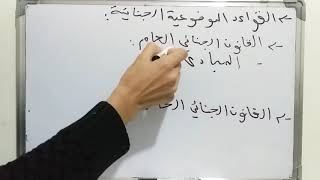 -> القواعد الموضوعية الجنائية:
-> القانون الجنائي العام:
- المبادئ
-> القانون الجنائي